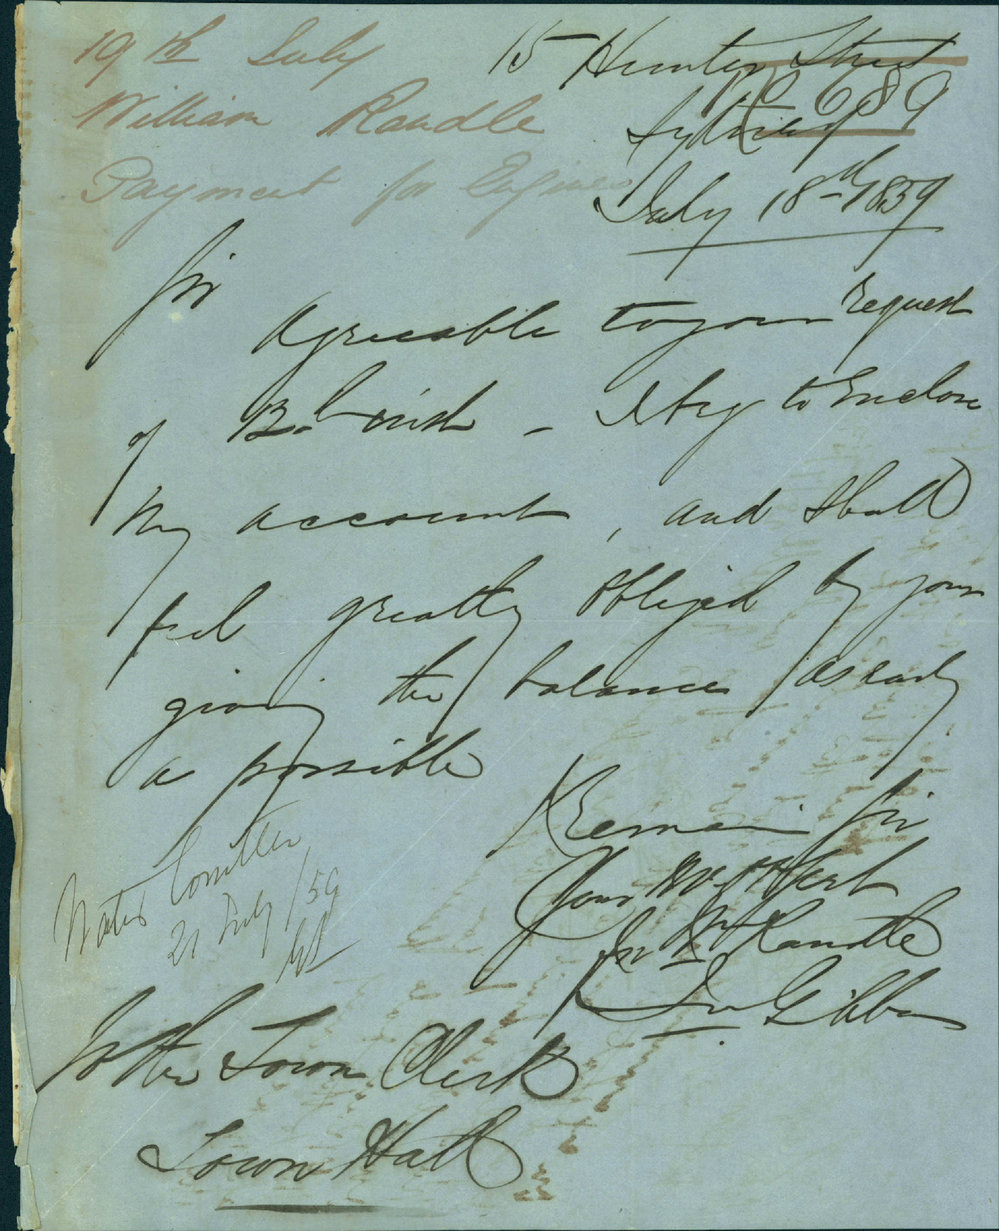 19th July
William Randle
Payment for Engines
15 Hunter Street
No 689
Sydney
July 18th 1859
Sir
Agreeable to your request
of 12th inst - I beg to Enclose
my account, and shall
feel greatly obliged by your
giving the balance as early
as possible
I Remain Sir
Your
for Wm Randle
Jn Gibbs
Water Comittee
21 July /59
To the Town Clerk
Town Hall